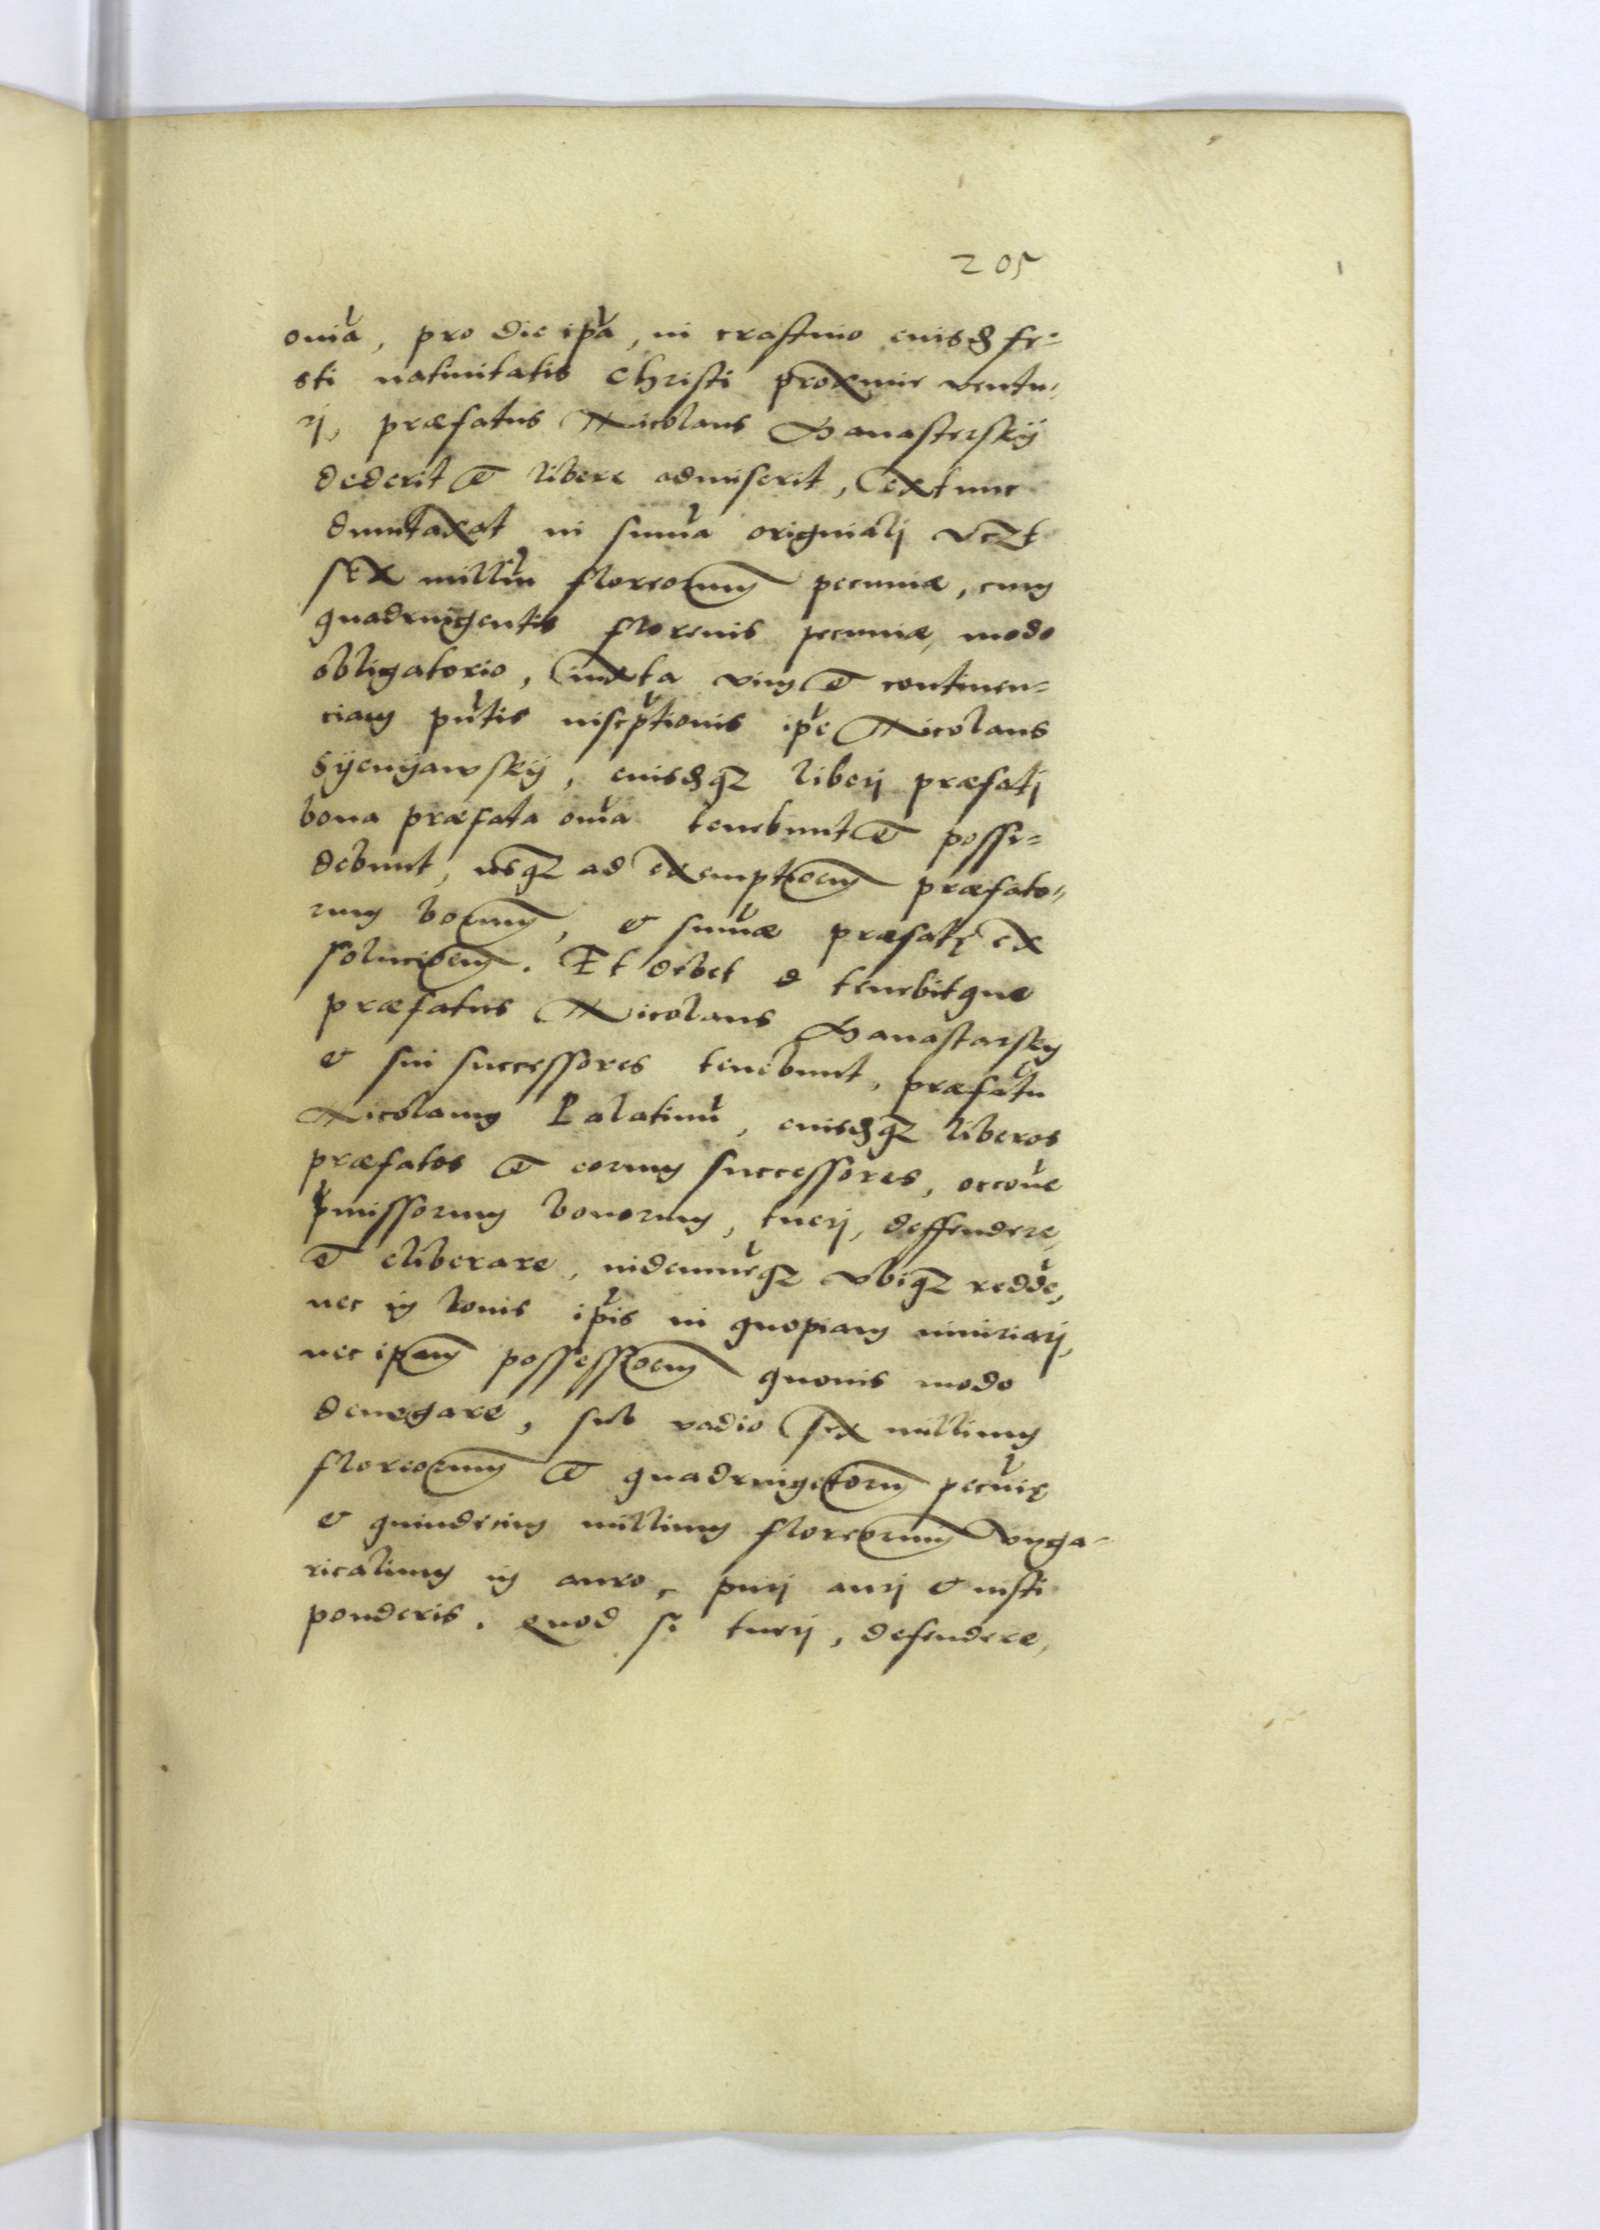 205
om̃ia, pro die ip̃a, in crastino eiusd fe=
sti natiuitatis Christi proxime ventu,
rj, præfatus Nicolaus Banasterskÿ
dederit et libere admiserit, extunc
duntaxat in sum̃a originalj vczt
sex milliũ floreorum pecuniæ, cum
quadringentis florenis pecuniæ, modo
obligatorio, iuxta vim et continen=
ciam pñtis inscp̃tionis ip̃e Nicolaus
Syenyawskÿ, eiusdqz liberj præfatj
bona præfata om̃ia tenebunt et possi=
debunt, usqz ad exemptioem præfato,,
rum bonorum, et sum̃æ præfatę ex
solucioem. Et debet et tenebitque
præfatus Nicolaus Banastarsky
et sui successores tenebunt, præfatũ
Nicolaum Palatinũ, eiusdqz liberos
præfatos et eorum successores, occoñe
p̃missorum bonorum, tuerj, deffendere,
et eliberare, indemnẽqz vbiqz redde,
nec in bonis ip̃is in quopiam iniuriarj,
nec ipam possessioem quouis modo
denegare, sub vadio sex millium
floreorum et quadringetorum pecũię
et quindecim millium floreorum vnga-
ricalium in auro, purj aurj et iusti
ponderis. Quod si tuerj, defendere,